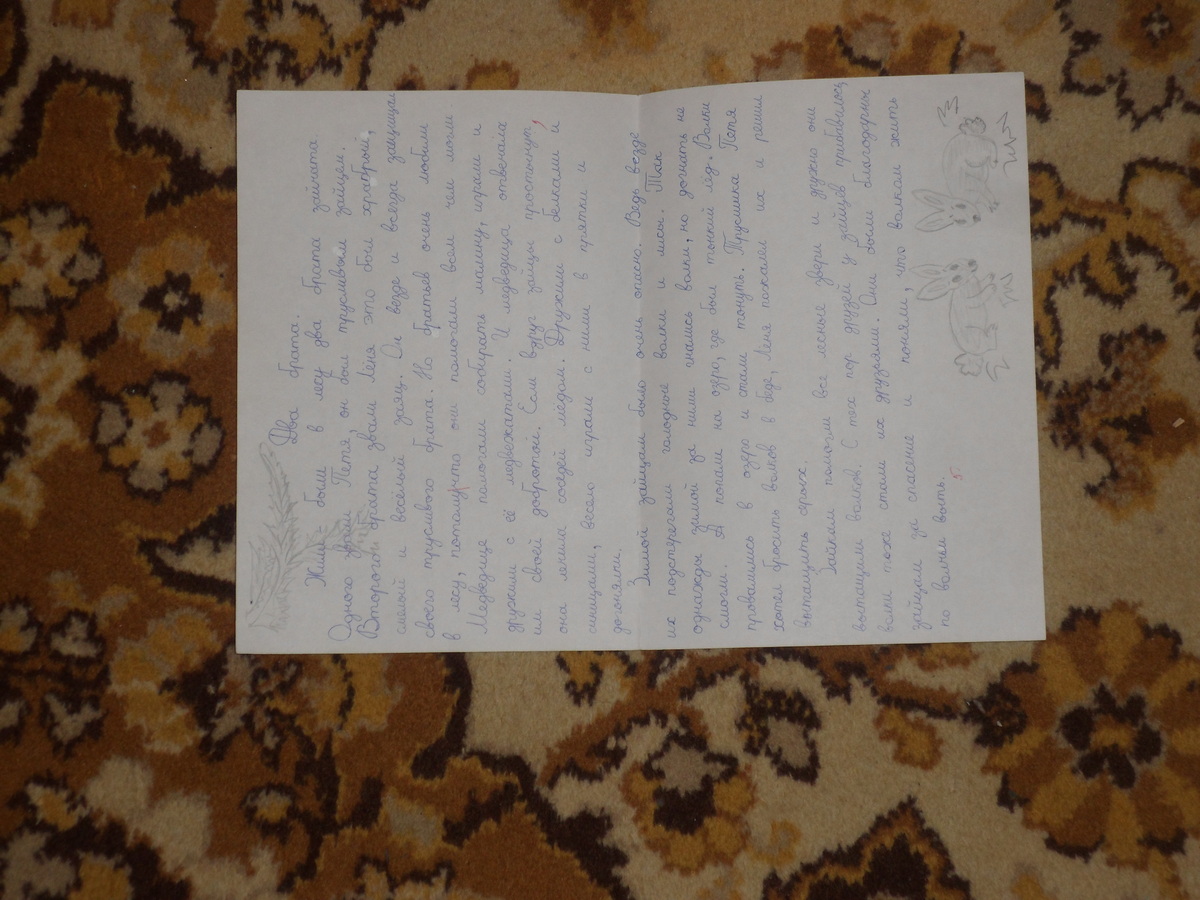 Два брата.
Жили – были в лесу два брата зайчата
Одного звали Петя, он был трусливым зайцем.
Второго брата звали Лёня это был храбрый,
смелый и весёлый заяц. Он везде и всегда защищал
своего трусливого брата. Но братьев очень любили
в лесу, потому что они помогали всем чем могли.
Медведице помогали собирать малину, играли и
дружили с её медвежатами. И медведица отвечала
им своей добротой. Если вдруг зайцы простынут,
она лечила соседей мёдом. Дружили с белками и
синицами, весело играли с ними в прятки и
догонялки.
Зимой зайцам было очень опасно. Ведь везде
их подстерегали голодные волки и лисы. Так
однажды зимой за ними гнались волки, но догнать не
смогли. А попали на озеро, где был тонкий лёд. Волки
провалились в озеро и стали тонуть. Трусишка Петя
хотел бросить волков в беде, Лёня пожалел их и решил
вытащить серых.
Зайкам помогли все лесные звери и дружно они
вытащили волков. С тех пор друзей у зайцев прибавилось,
волки тоже стали их друзьями. Они были благодарны
зайцам за спасение и поняли, что волкам жить
по волчьи выть.